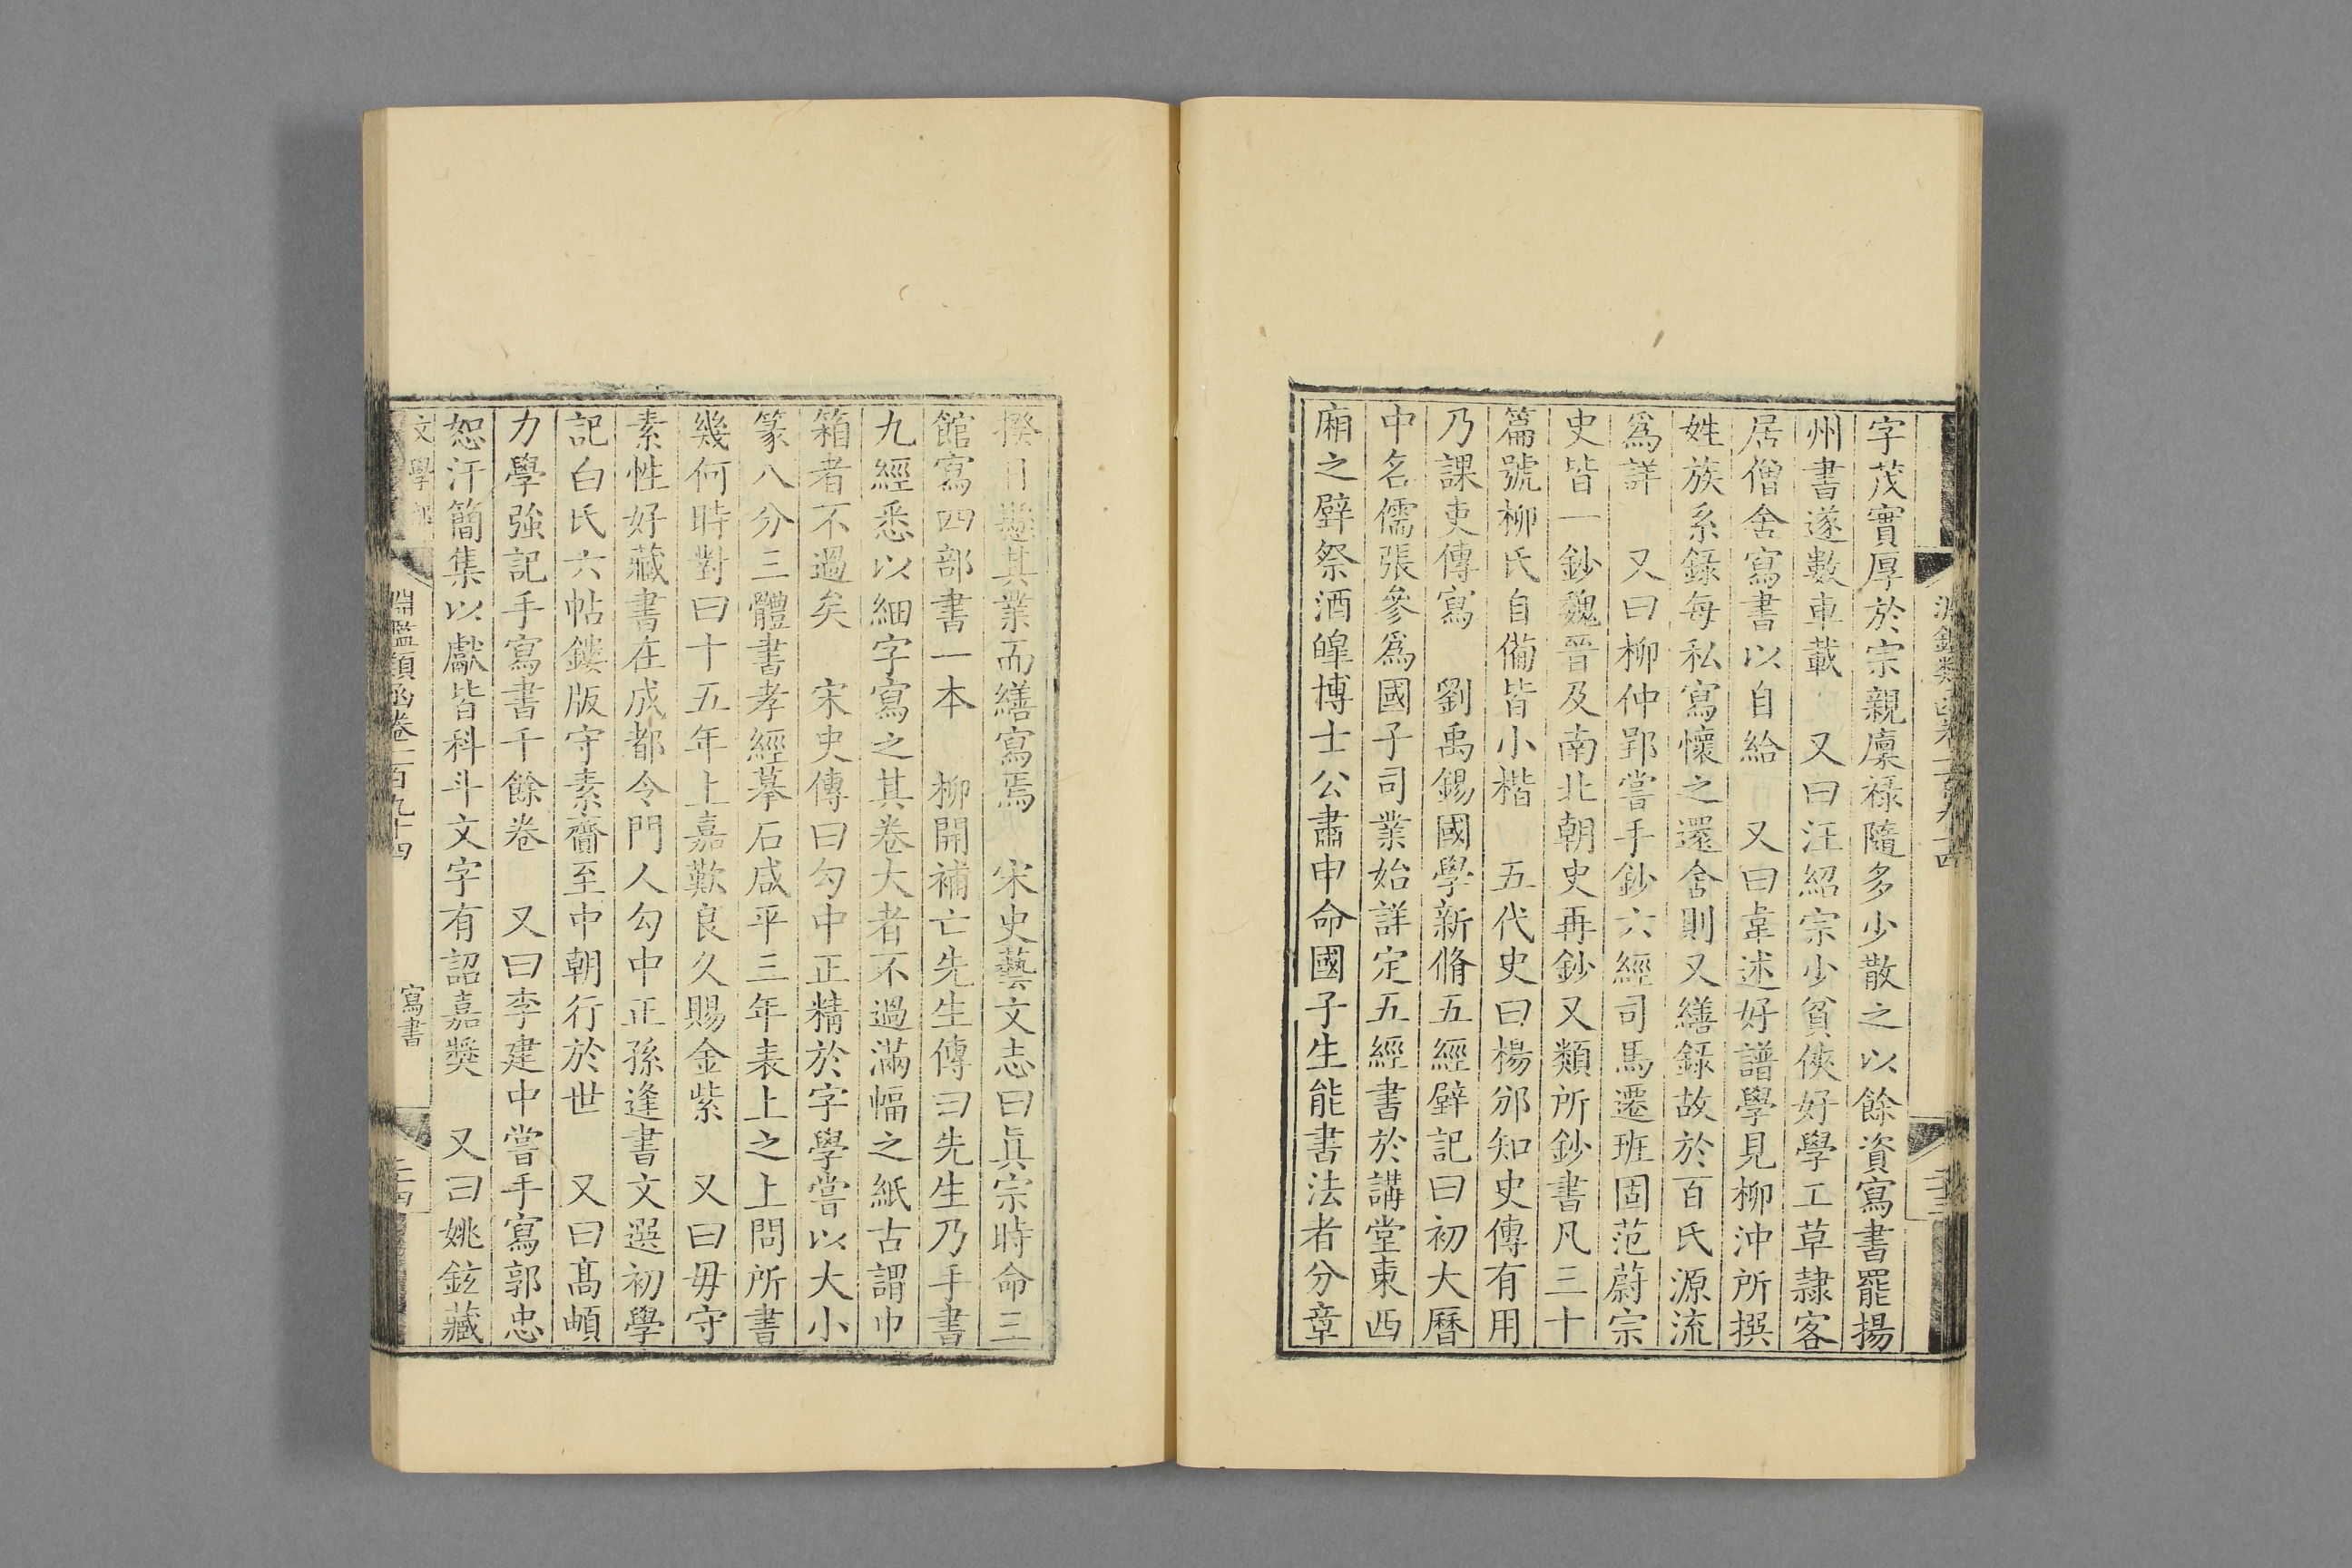 字茂實厚於宗親廩祿隨多少散之以餘資寫書罷揚
州書遂數車載　又曰汪紹宗少貧俠好學工草隷客
居僧舍寫書以自給　又曰韋述好譜學見柳沖所撰
姓族系錄每私寫懷之還舍則又繕錄故於百氏源流
爲詳　又曰柳仲郢嘗手鈔六經司馬遷班固范蔚宗
史皆一鈔魏晉及南北朝史再鈔又類所鈔書凡三十
篇號柳氏自備皆小楷　五代史曰楊邠知史傳有用
乃課吏傳寫　劉禹錫國學新脩五經壁記曰初大曆
中名儒張參爲國子司業始詳定五經書於講堂東西
廂之壁祭酒皥博士公肅申命國子生能書法者分章
揆日懸其業而繕寫焉　宋史藝文志曰眞宗時命三
館寫四部書一本　柳開補亡先生傳曰先生乃手書
九經悉以細字寫之其卷大者不過滿幅之紙古謂巾
箱者不過矣　宋史傳曰勾中正精於字學嘗以大小
篆八分三體書孝經摹石咸平三年表上之上問所書
幾何時對曰十五年上嘉歎良久賜金紫　又曰毋守
素性好藏書在成都令門人勾中正孫逢書文選初學
記白氏六帖鏤版守素齎至中朝行於世　又曰高頔
力學強記手寫書千餘卷　又曰李建中嘗手寫郭忠
恕汗簡集以獻皆科斗文字有詔嘉獎　又曰姚鉉藏
文學部　淵鑑類函卷一百九十四　寫書